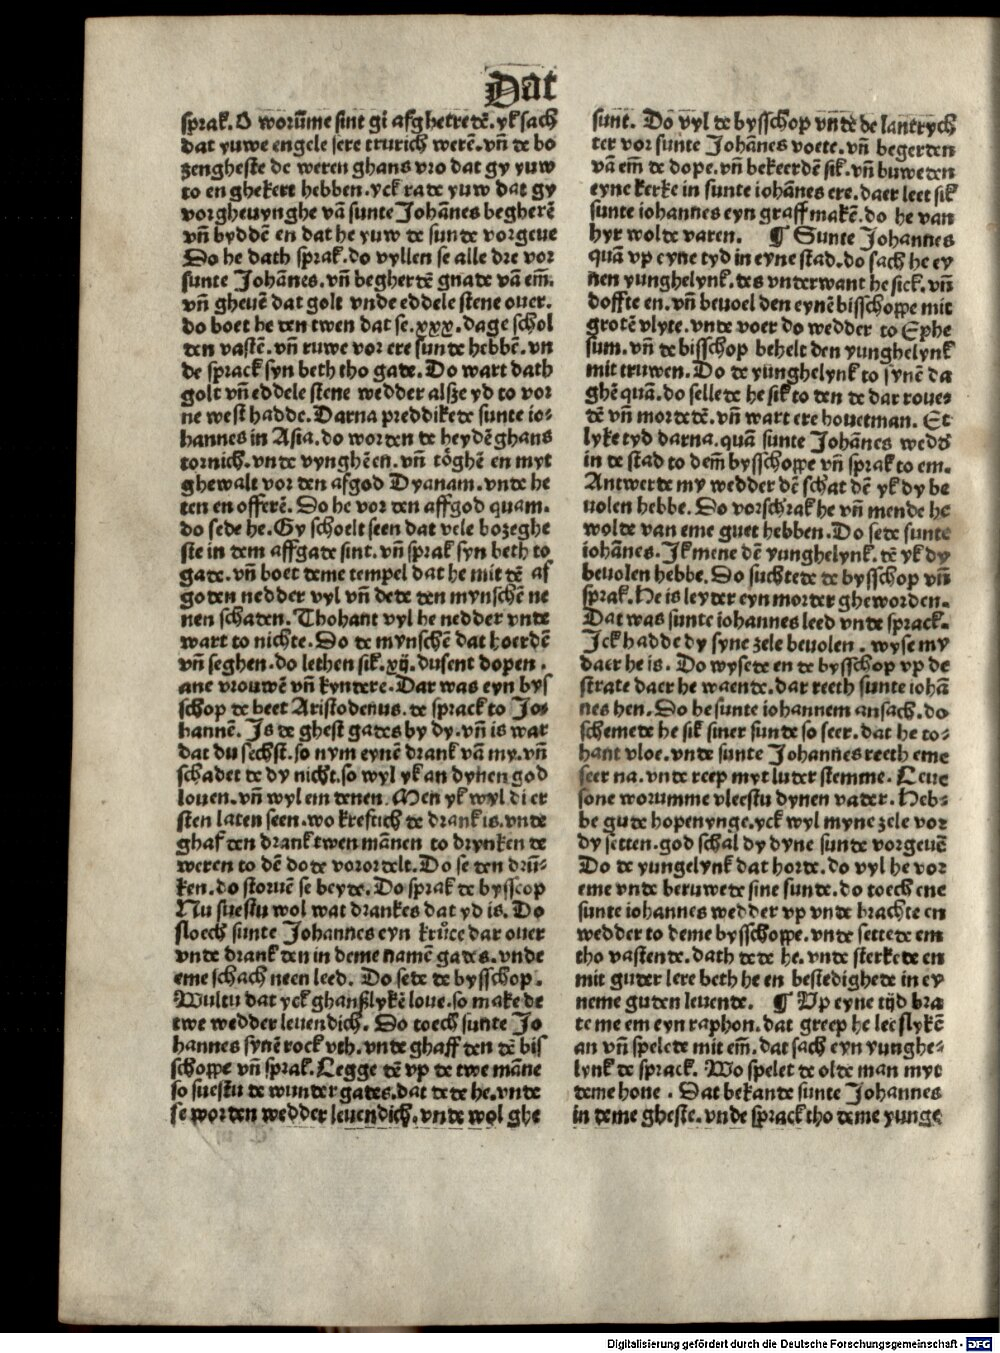 Dat
sprak. O worūme sint gi afghetretē. yk sach
dat yuwe engele sere trurich werē. vn̄ de bo
zengheste de weren ghans vro dat gy yuw
to en ghekert hebben. yck rade yuw dat gy
vorgheuynghe vā sunte Johānes begherē
vn̄ byddē en dat he yuw de sunde vorgeue
Do he dath sprak. do vyllen se alle dre vor
sunte Johānes. vn̄ begherdē gnade vā em̄.
vn̄ gheuē dat golt vnde eddele stene ouer.
do boet he den twen dat se. xxx. dage schol
den vastē. vn̄ ruwe vor ere sunde hebbē. vn
de sprack syn beth tho gade. Do wart dath
golt vn̄ eddele stene wedder alsze yd to vor
ne west hadde. Darna preddikede sunte io-
hannes in Asia. do worden de heydē ghans
tornich. vnde vynghē en. vn̄ tôghē en myt
ghewalt vor den afgod Dyanam. vnde he
ten en offerē. Do he vor den affgod quam.
do sede he. Gy schoelt seen dat vele bozeghe
ste in dem affgade sint. vn̄ sprak syn beth to
gade. vn̄ boet deme tempel dat he mit dē af
goden nedder vyl vn̄ dede den mynschē ne
nen schaden. Thohant vyl he nedder vnde
wart to nichte. Do de mynschē dat hoerdē
vn̄ seghen. do lethen sik. xij. dusent dopen.
ane vrouwē vn̄ kyndere. Dar was eyn bys
schop de heet Aristodenus. de sprack to Jo-
hannē. Is de ghest gades by dy. vn̄ is war
dat du sechst. so nym eynē drank vā my. vn̄
schadet de dy nicht. so wyl yk an dynen god
louen. vn̄ wyl em denen. Men yk wyl di er
sten laten seen. wo kreftich de drank is. vnde
ghaf den drank twen mānen to drynken de
weren to dē dode vorordelt. Do se den drū-
ken. do storuē se beyde. Do sprak de bysscop
Nu suestu wol wat drankes dat yd is. Do
sloech sunte Johannes eyn krůce dar ouer
vnde drank den in deme namē gades. vnde
eme schach neen leed. Do sede de bysschop.
Wultu dat yck ghanßlykē loue. so make de
twe wedder leuendich. Do toech sunte Jo
hannes synē rock vth. vnde ghaff den dē bis
schoppe vn̄ sprak. Legge dē vp de twe māne
so suestu de wunder gades. dat dede he. vnde
se worden wedder leuendich. vnde wol ghe
sunt. Do vyl de bysschop vnde de lantrych
ter vor sunte Johānes voete. vn̄ begerden
vā em̄ de dope. vn̄ bekeerdē sik. vn̄ buweden
eyne kerke in sunte iohānes ere. daer leet sik
sunte iohannes eyn graff makē. do he van
hyr wolde varen. ¶ Sunte Johannes
quā vp eyne tyd in eyne stad. do sach he ey
nen yunghelynk. des vnderwant he sick. vn̄
doffte en. vn̄ beuoel den eynē bisschoppe mit
grotē vlyte. vnde voer do wedder to Ephe
sum. vn̄ de bisschop behelt den yunghelynk
mit truwen. Do de yunghelynk to synē da
ghē quā. do sellede he sik to den de dar roue-
dē vn̄ mordedē. vn̄ wart ere houetman. Et
lyke tyd darna. quā sunte Johānes wedd̉
in de stad to dem̄ bysschoppe vn̄ sprak to em.
Antwerde my wedder dē schat dē yk dy be
uolen hebbe. Do vorschrak he vn̄ mende he
wolde van eme guet hebben. Do sede sunte
iohānes. Ik mene dē yunghelynk. dē yk dy
beuolen hebbe. Do suchtede de bysschop vn̄
sprak. He is leyder eyn morder gheworden.
Dat was sunte iohannes leed vnde sprack.
Ick hadde dy syne zele beuolen. wyse my
daer he is. Do wysede en de bysschop vp de
strate daer he waende. dar reeth sunte iohā
nes hen. Do he sunte iohannem ansach. do
schemede he sik siner sunde so seer. dat he to-
hant vloe. vnde sunte Johannes reeth eme
seer na. vnde reep myt luder stemme. Leue
sone worumme vleestu dynen vader. Heb-
be gude hopenynge. yck wyl myne zele vor
dy setten. god schal dy dyne sunde vorgeuē
Do de yungelynk dat horde. do vyl he vor
eme vnde beruwede sine sunde. do toech ene
sunte iohannes wedder vp vnde brachte en
wedder to deme bysschoppe. vnde settede em
tho vastende. dath dede he. vnde sterkede en
mit guder lere beth he en bestedighede in ey
neme guden leuende. ¶ Vp eyne tijd bra
te me em eyn raphon. dat greep he leeflykē
an vn̄ spelede mit em̄. dat sach eyn yunghe-
lynk de sprack. Wo spelet de olde man myt
deme hone. Dat bekande sunte Johannes
in deme gheste. vnde sprack tho deme yunge
Digitalisierung gefördert durch die Deutsche Forschungsgemeinschaft - DFG